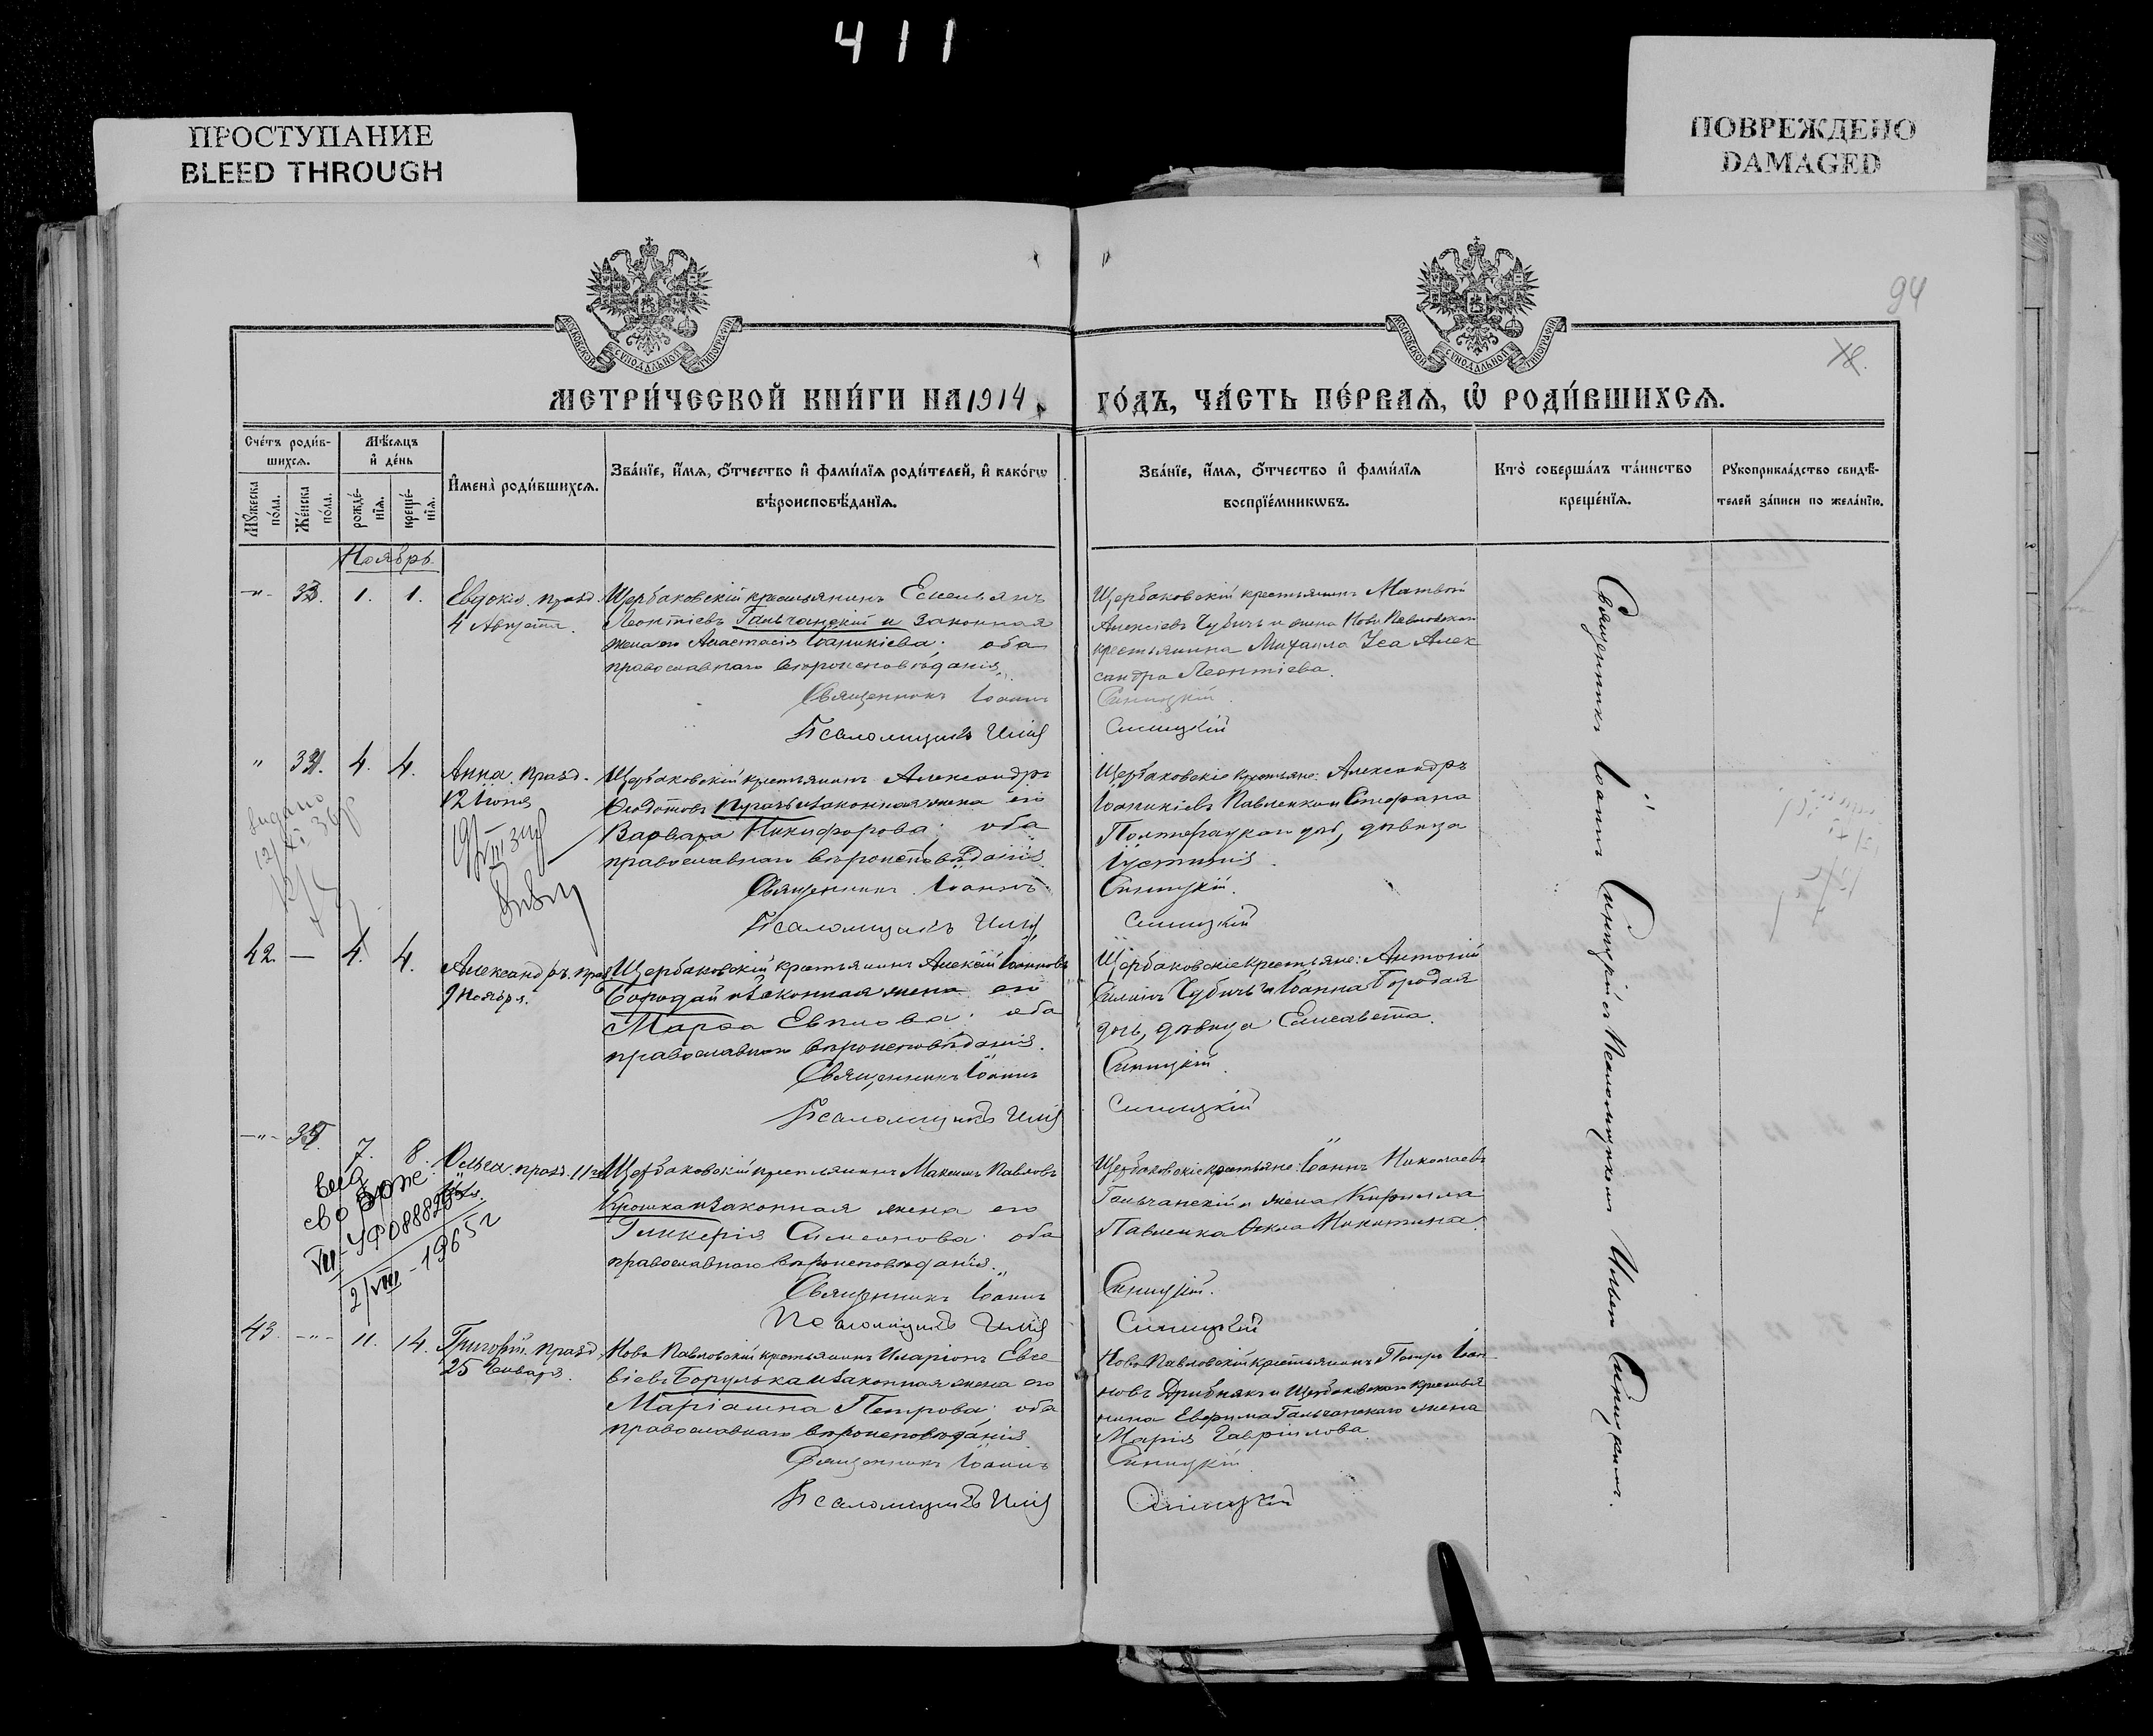 411
ПРОСТУПАНИЕ
BLEED THROUGH
ПОВРЕЖДЕНО
DAMAGED
94
МОСКОВСКОЙ СѴНОДАЛЬНОЙ ТИПОГРАФІИ
МОСКОВСКОЙ СѴНОДАЛЬНОЙ ТИПОГРАФІИ
МЕТРИ́ЧЕСКОЙ КНИ́ГИ НА 1914 ГО́ДЪ, ЧА́СТЬ ПЕ́РВАѦ, Ѡ҆ РОДИ́ВШИХСѦ.
Сче́тъ роди́в-
шихсѧ.
Мꙋ́жеска по́ла.
Же́нска по́ла.
Мѣ́сѧцъ
и҆ де́нь
рожде́-
нїѧ.
креще́-
нїѧ.
И҆мена̀ роди́вшихсѧ.
Зва́нїе, и҆́мѧ, ѻ҆́тчество и҆ фами́лїѧ роди́телей, и҆ како́гѡ
вѣроисповѣ́данїѧ.
Зва́нїе, и҆́мѧ, ѻ҆́тчество и҆ фами́лїѧ
воспрїе́мникѡвъ.
Кто̀ соверша́лъ та́инство
креще́нїѧ.
Рꙋкоприкла́дство свидѣ́-
телей за́писи по жела́нїю.
Ноябрь.
-"- 33. 1. 1.
Евдокія. празд.
4 Августа.
Щербаковскій крестьянинъ Емельянъ
Леонтіевъ Гальчанскій и законная
жена его Анастасія Іоаникіева; оба
православнаго вѣроисповѣданія.
Священникъ Іоаннъ
Псаломщикъ Илія
Щербаковскій крестьянинъ Матвѣй
Алексіевъ Чубичъ и жена Ново Павловскаго
крестьянина Михаила Уса Алек
сандра Леонтіева.
Синицкій.
Синицкій
" 34. 4. 4.
Анна. празд.
12 Іюня
Щербаковскій крестьянинъ Александръ
Ѳеодотовъ и законная жена его
Варвара Никифорова; оба
православнаго вѣроисповѣданія
Священникъ Іоаннъ
Псаломщикъ Илія
Щербаковскіе крестьяне: Александръ
Іоаникіевъ Павленко и Стефана
дѣвица
Іустинія.
Синицкій.
Синицкій
42. — 4. 4.
Александръ. празд
9 Ноября.
Щербаковскій крестьянинъ Алексій Іоанновъ
Бородай и законная жена его
Марѳа Евплова; оба
православнаго вѣроисповѣданія.
Священникъ Іоаннъ
Псаломщикъ Илія
Щербаковскіе крестьяне: Антоній
Чубичъ и Іоанна Бородая
дочь, дѣвица Елисавета.
Синицкій.
Синицкій
-"- 35. 7. 8.
Ольга. празд. 11 Іюля.
2/VIII-1965 г
Щербаковскій крестьянинъ Максимъ Павловъ
Крошка и законная жена его
Гликерія Симеонова; оба
православнаго вѣроисповѣданія.
Священникъ Іоаннъ
Псаломщикъ Илія
Щербаковскіе крестьяне: Іоаннъ Николаевъ
Гальчанскій и жена Кирилла
Павленка Ѳекла Никитина.
Синицкій.
Синицкій
43. -"- 11. 14.
Григорій. празд.
25 Января.
Ново Павловскій крестьянинъ Иларіонъ Евсе
віевъ Борулька и законная жена его
Маріамна Петрова; оба
православнаго вѣроисповѣданія
Священникъ Іоаннъ
Псаломщикъ Илія
Ново Павловскій крестьянинъ Петръ Іоан
новъ Дрибнякъ и Щербаковскаго крестья
нина Евфима Гальчанскаго жена
Марія Гавріилова.
Синицкій
Синицкій
Священникъ Іоаннъ Синицкій съ Псаломщикомъ Иліею Синицкимъ.